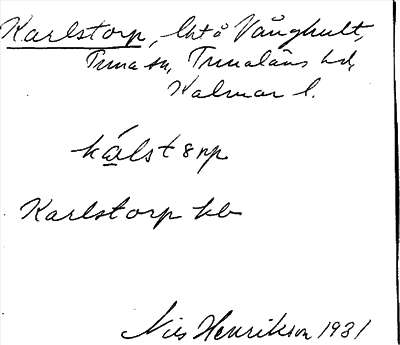 Karlstorp, lht å Vånghult,
Tuna sn, Tunaläns hd,
Kalmar l.
kálst8rp
Karlstorp kb
Nils Henrikson 1931